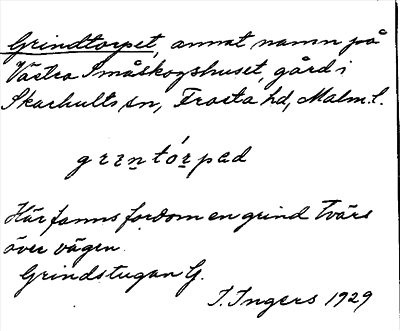 Grindtorpet, annat namn på
Västra Småskogshuset, gård i
Skarhults sn, Frosta hd, Malm. l.
grɪntórpad
Här fanns fordom en grind tvärs
över vägen.
Grindstugan G.
I. Ingers 1929